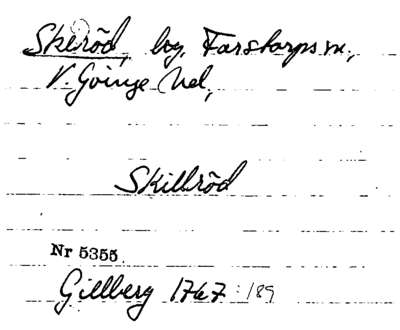 Skeröd, by, Farstorps sn,
V. Göinge hd,
Skillröd
Nr 5355.
Gillberg 1767:189